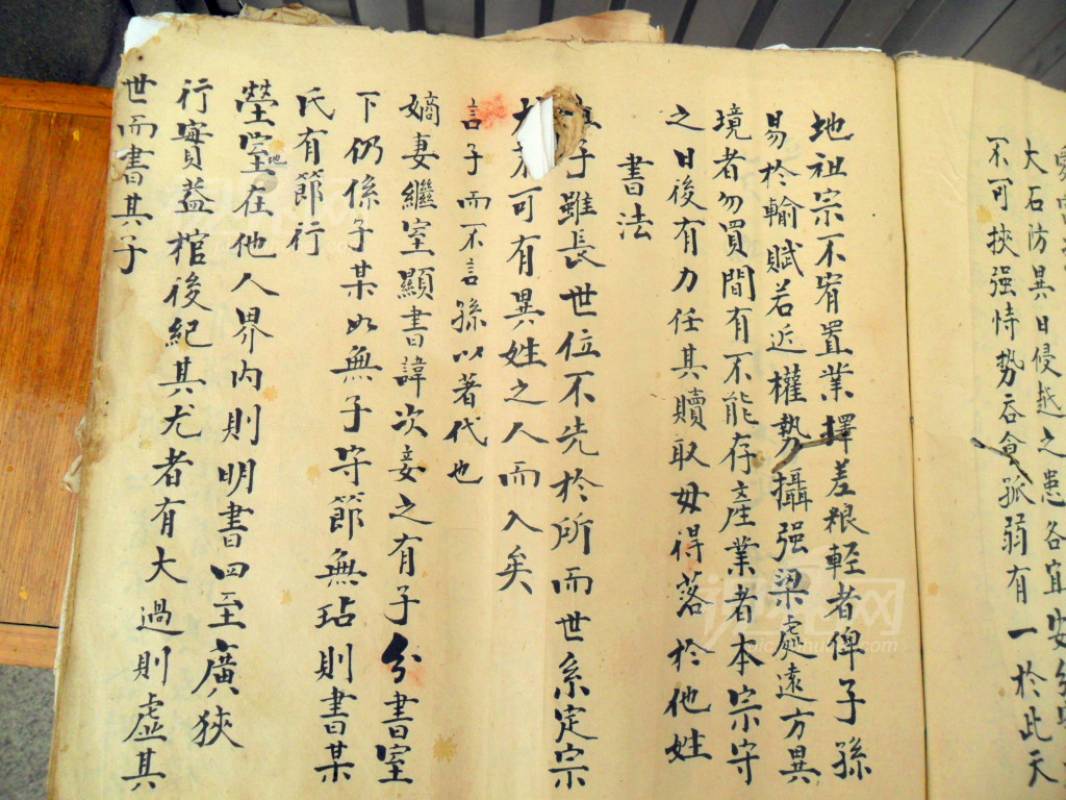 大石防異日侵越之患各宜安分
不可挾强恃勢吞食孤弱有一於此天
地祖宗不宥置業擇差粮輕者俾子孫
易於輸賦若近權勢攝强梁處遠方異
境者勿買間有不能存產業者本宗守
之日後有力任其贖取毋得落於他姓
書法
子雖長世位不先於所而世系定宗
可有異姓之人而入矣
言子而不言孫以著代也
嫡妻繼室顯書諱次妾之有子分書室
下仍係子某如無子守節無玷則書某
氏有節行
塋室地在他人界内則明書四至廣狹
行實蓋棺後紀其尤者有大過則虛其
世而書其子